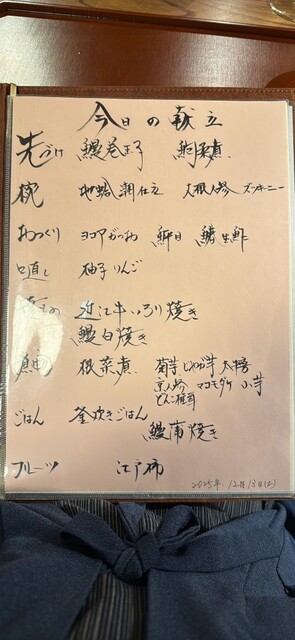 今日の献立
先づけ 鰻巻玉子 煮
椀 地蛤 潮仕立 大根人参 ズッキーニ
おつくり ヨコワがつお 鮃昆 鱗生鮓
口直し 柚子りんご
近江牛いろり焼き
鰻白焼き
根菜煮 菊芋 じゃが芋 大根
京人参 マコモダケ 小芋
どんこ椎茸
ごはん 釜炊きごはん
鰻蒲焼き
フルーツ 江戸柿
2025年 12月13日(土)